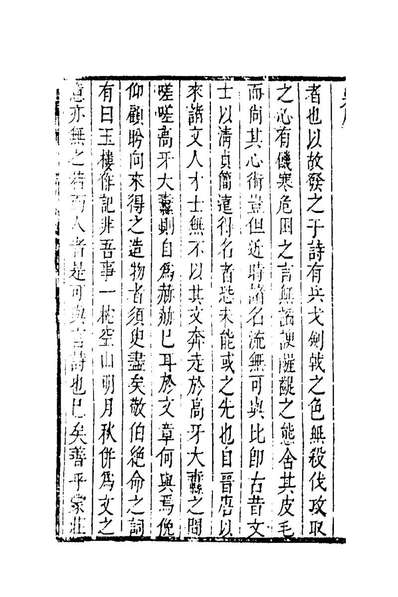 者也以故發之于詩有兵戈劍戟之色無殺伐攻取
之心有饑寒危困之言無諂諛脂韋之態舍其皮毛
而尚其心術豈但近時諸名流無可與比即古昔文
士以清貞簡遠得名者恐未能或之先也自晉唐以
來諸文人才士無不以其文奔走於高牙大纛之間
嗟嗟高牙大纛則自為赫赫已耳於文章何與焉俛
仰顧盼向來得之造物者須臾盡矣敬伯絶命之詞
有曰玉樓作記非吾事一枕空山明月秋併為文之
意亦無之若而人者是可與言詩也已矣善乎蒙莊